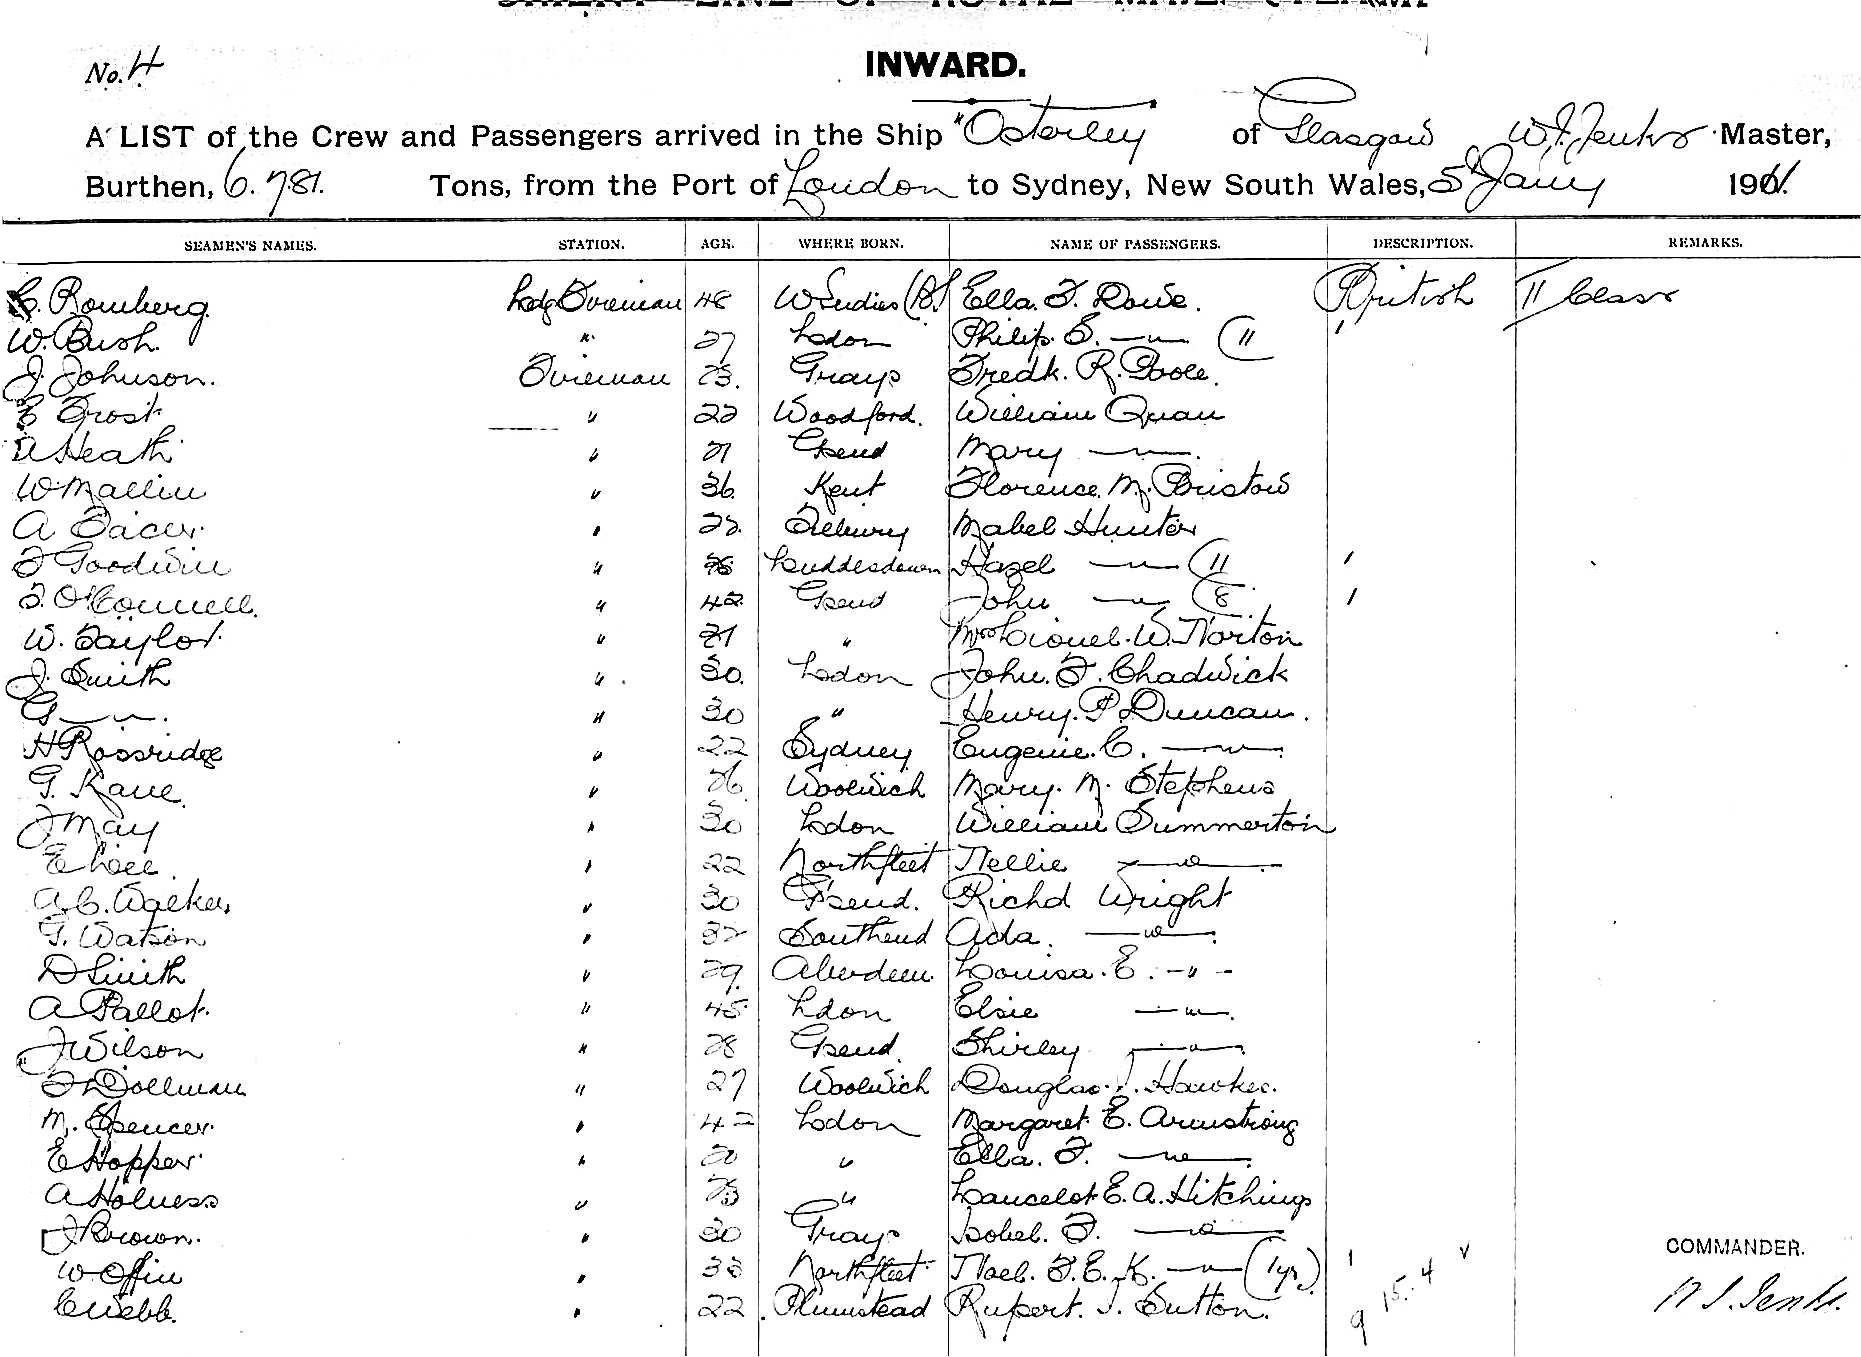 No. 4
INWARD.
A LIST of the Crew and Passengers arrived in the Ship "Osterley of Glasgow W. J. Jenks Master,
Burthen, 6.781. Tons, from the Port of London to Sydney, New South Wales, 5th Jany 1911.
SEAMEN'S NAMES. STATION. AGE. WHERE BORN. NAME OF PASSENGERS. DESCRIPTION. REMARKS.
C. Romberg Ldg Fireman 48 W Indies (B) Ella. F. Dowe. British II Class
W. Bush. " 27 Ldon Philip. S. —"— (11 '
J. Johnson. Fireman 23. Grays Fredk. R. Poole.
E Frost " 22 Woodford. William Quan
A Heath " 21 Gsend Mary —"—.
W. Mallin " 36 Kent Florence. M. Bristow
A " 22. Tilbury Mabel Hunter
F Goodwin " Luddesdown Hazel —"— (11 '
F. O'Connell. " 42 Gsend John —"— (8 '
W. Taylor. " 21 " Mrs Lionel. W. Norton
J. Smith " 30. Ldon John. F. Chadwick
G —"—. " 30 " Henry. P. Duncan.
H Rossridge " 22 Sydney Eugenie. C. —"—
G. Kane. " 26 Woolwich Mary. M. Stephens
J May " 30 Ldon William Summerton
E Lee. " 22 Northfleet Nellie —"—
A. C. Walker. " 30 Gsend. Richd Wright
G. Watson " 32 Southend Ada. —"—.
D Smith " 29. Aberdeen. Louisa. E. -"-
A Pallot. " 45 Ldon Elsie —"—.
J Wilson " 28 Gsend. Shirley —"—.
F Dollman " 27 Woolwich Douglas. J. Hawker.
M. Spencer. " 42 Ldon Margaret E. Armstrong
E Hopper. " 20 " Ella. F. —"—.
A Holness " 23 " Lancelot E. A. Hitchings
J Brown. " 30 Grays Isobel. F. —"—
COMMANDER.
W Offin " 33 Northfleet Noel. F. E. K. —"— (1 yr.) '
9 15.. 4 v
C Webb. " 22. Plumstead Rupert. J. Sutton.
W. J. Jenks.